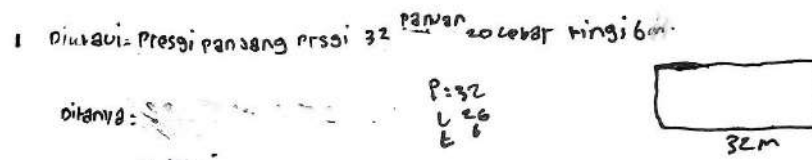 1 Diketaui = Presgi pansang Prsgi 32 panjan 20 lebar tingi 6 m.
Ditanya :
P : 32
L 26
t 6
32 m